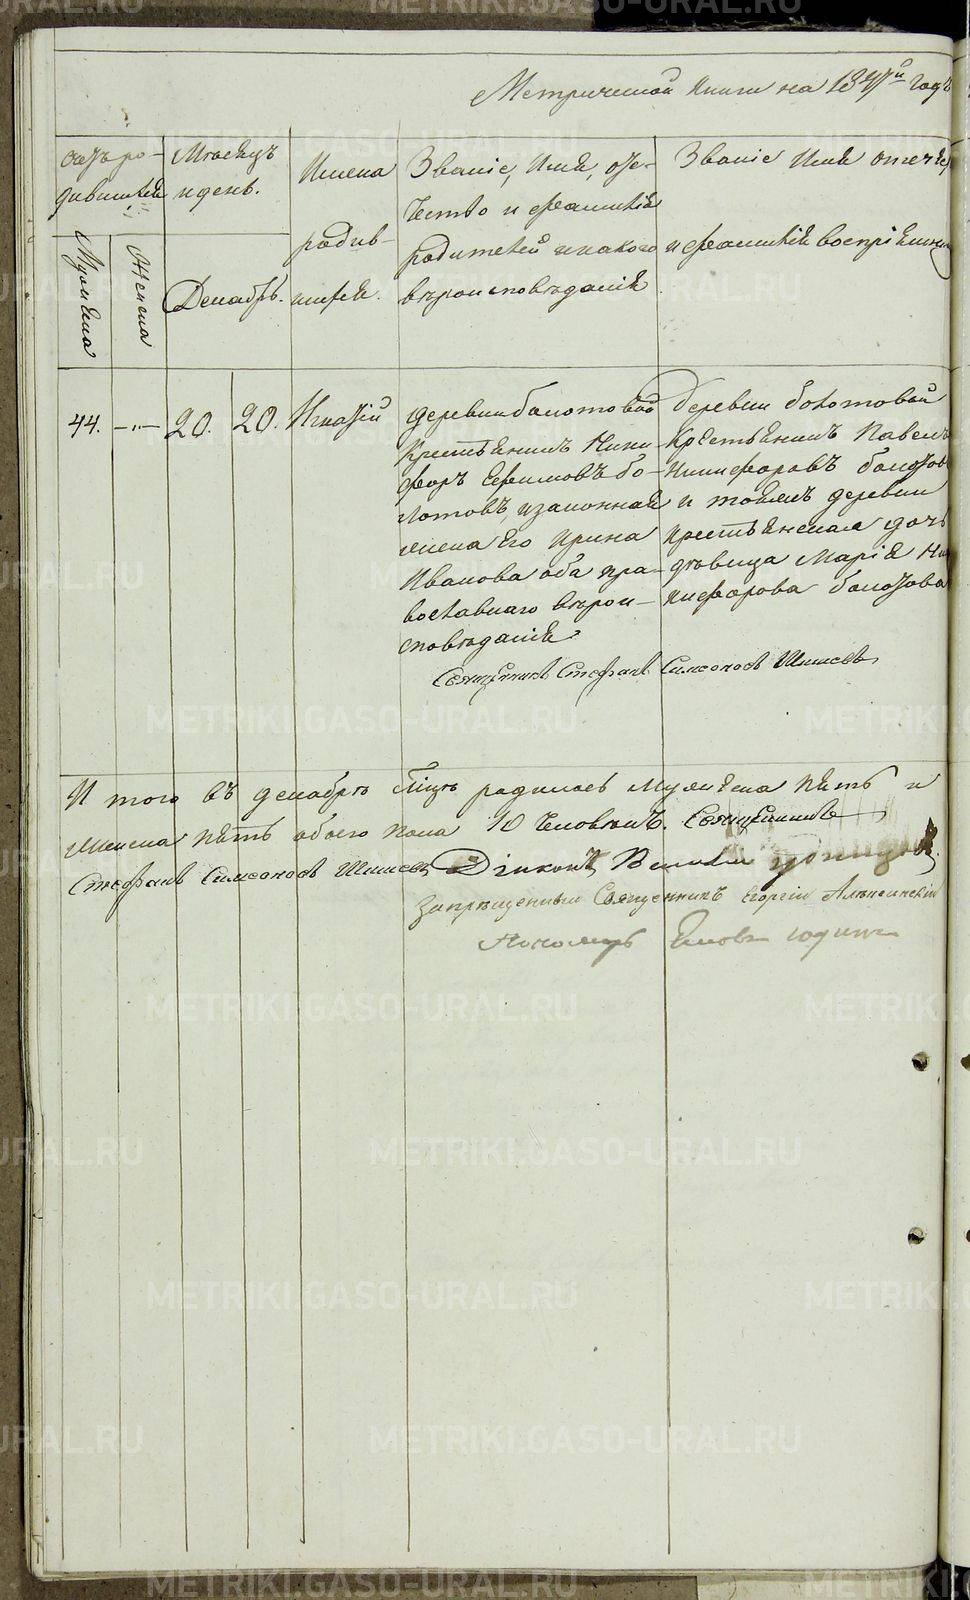 Метрической книги на 1847й годъ
Счетъ ро-
дившихся
Мужеска
Женска
Месяцъ
и день.
Декабрь.
Имена
родив-
шихся.
Званіе, Имя, оте-
чество и фамилія
родителей и какого
вѣроисповѣданія
Званіе Имя отече
и фамилія воспріемни
44. —„— 20. 20. Игнатій
деревни болотовой
Крестьянинъ Ники-
форъ Ефимовъ бо-
лотовъ, и законная
жена Его Ирина
Иванова оба пра-
вославнаго вѣрои-
сповѣданія
Деревни болотовой
Крестьянинъ Павелъ
Никифоровъ болотов
и тояжъ деревни
крестьянская дочь
дѣвица Марія Ни
кифорова болотова
Священникъ Стефанъ Симоновъ Шишевъ
И того въ декабрѣ мѣцѣ родилось Мужеска пять и
женска пять обоего пола 10 человѣкъ. Священникъ
Стефанъ Симоновъ Шишевъ Діаконъ
запрещенный Священникъ Егорій
Пономарь
METRIKI.GASO-URAL.RU